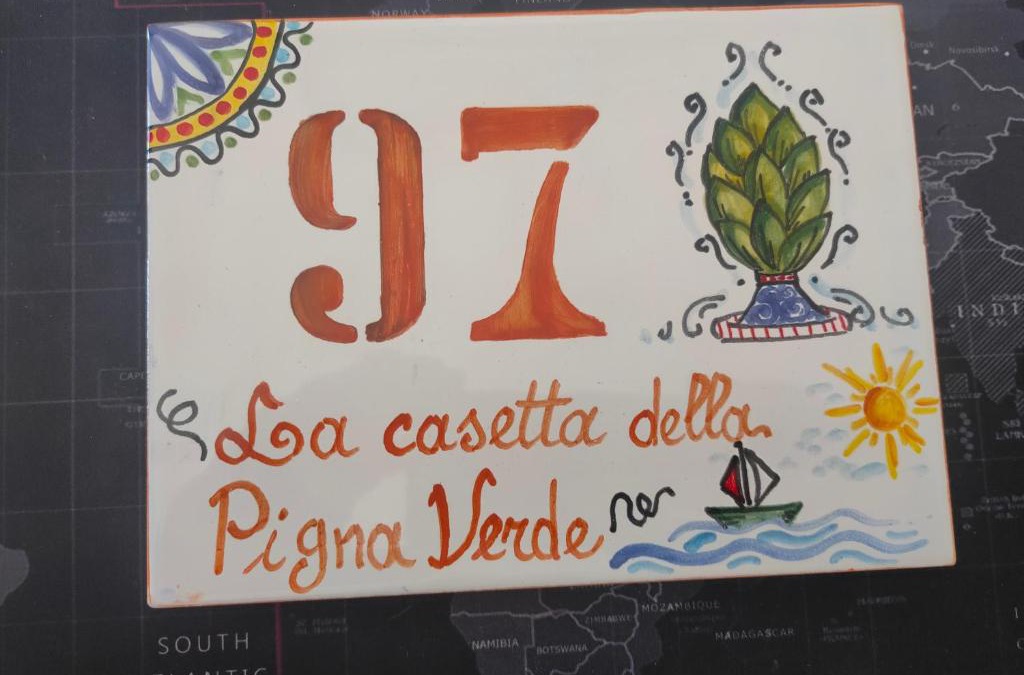 NORWAY
Novosibirsk
97
INDI
La casetta della
Pigna Verde
MOZAMBIQUE
ZIMBABWE
SOUTH
NAMIBIA
BOTSWANA
MADAGASCAR